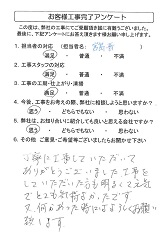 お客様工事完了アンケート
この度は、弊社の工事にてご愛顧頂き誠に有難うございました。
最後に、下記アンケートにお答え頂きます様お願い申し上げます。
1. 担当者の対応 (担当者名: )
満足 普通 不満
2. 工事スタッフの対応
満足 普通 不満
3. 工事の工期・仕上がり・清掃
満足 普通 不満
4. 今後、工事をお考えの際、弊社に相談しようと思いますか?
思う どちらでもない 思わない
5. 弊社は、お知り合いに紹介しても良いと思える会社ですか?
思う どちらでもない 思わない
6. その他、ご意見・ご希望等ございましたらお書き願います。
丁寧に工事していただいて
ありがとうございました 工事を
していただいたら も明るくて元気
でとても気持よかったです
又何かあった時にはよろしくお願い
致します